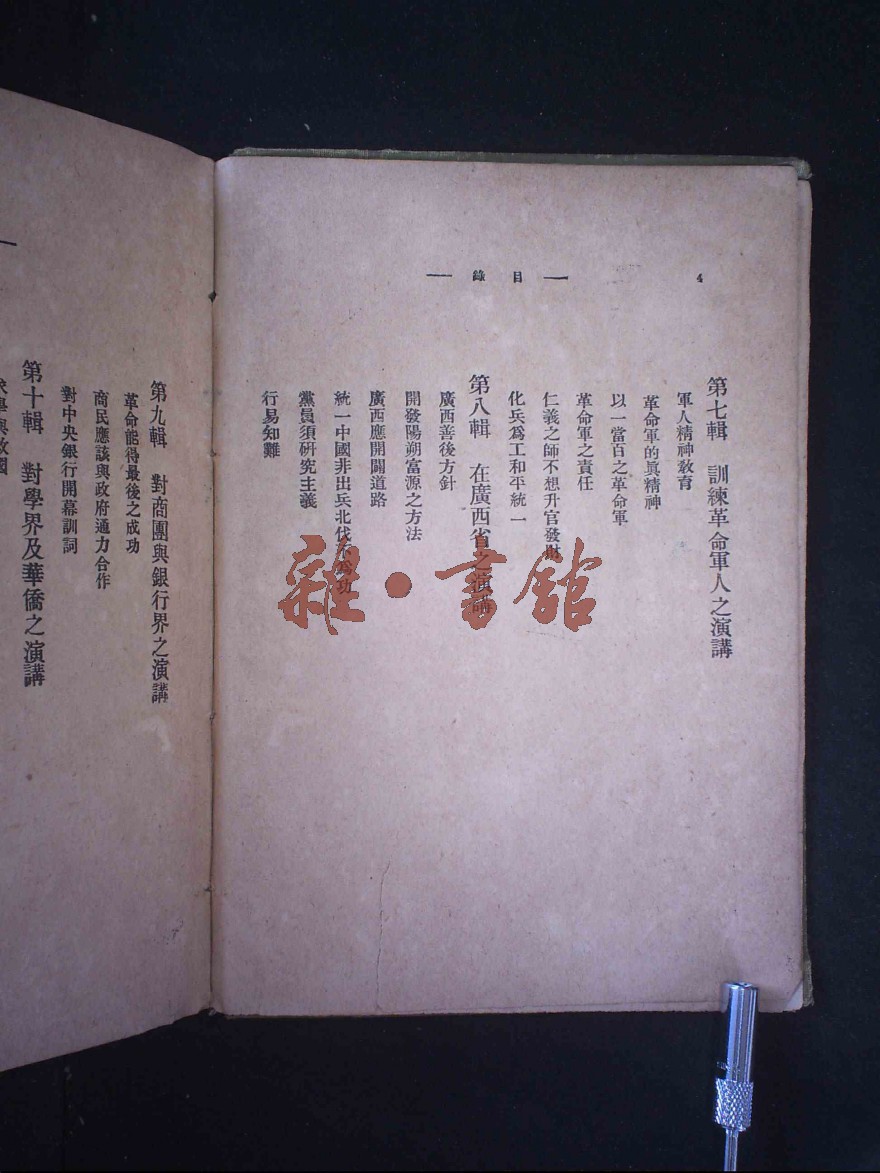 4
— 目錄 —
第七輯 訓練革命軍人之演講
軍人精神教育
革命軍的眞精神
以一當百之革命軍
革命軍之責任
仁義之師不想升官發財
化兵爲工和平統一
第八輯 在廣西省之演講
廣西善後方針
開發陽朔富源之方法
廣西應開闢道路
統一中國非出兵北伐不爲功
黨員須研究主義
行易知難
第九輯 對商團與銀行界之演講
革命能得最後之成功
商民應該與政府通力合作
對中央銀行開幕訓詞
第十輯 對學界及華僑之演講
雜·書館